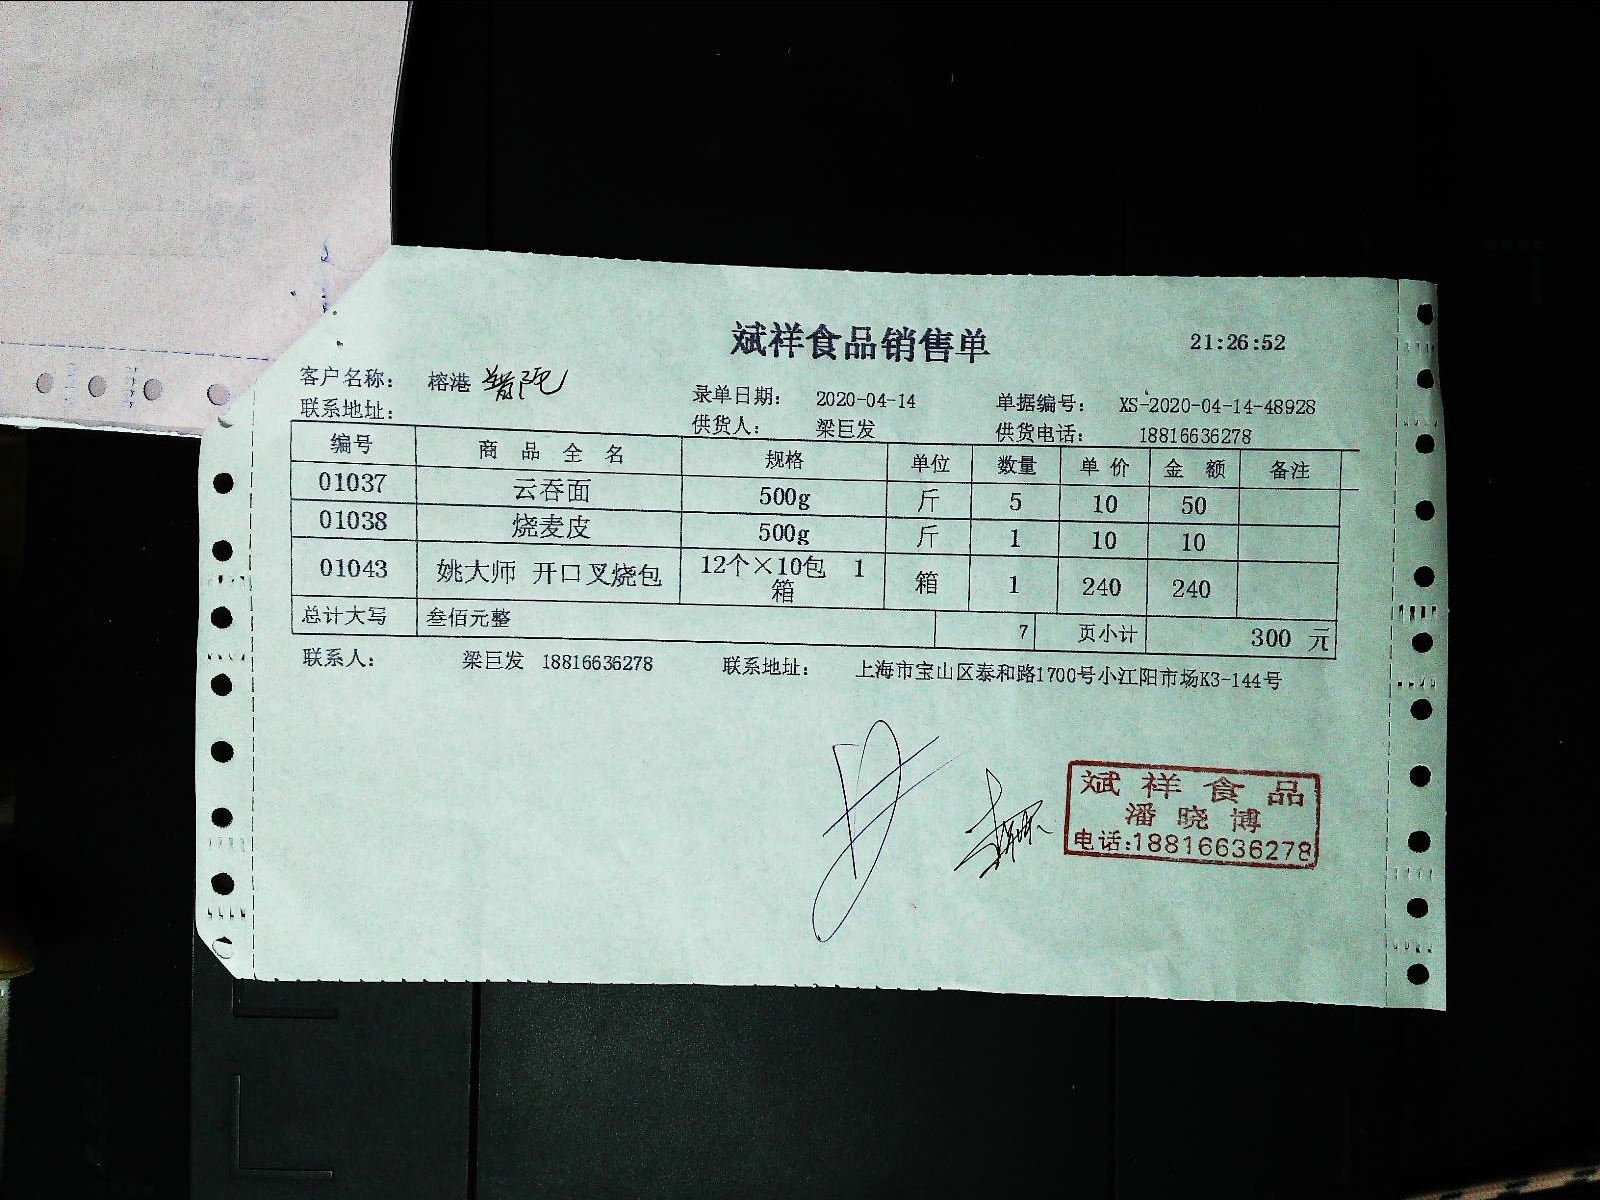 斌祥食品销售单 21:26:52
客户名称： 榕港 普陀 录单日期： 2020-04-14 单据编号： XS-2020-04-14-48928
联系地址： 供货人： 梁巨发 供货电话： 18816636278
编号 商品全名 规格 单位 数量 单价 金额 备注
01037 云吞面 500g 斤 5 10 50
01038 烧麦皮 500g 斤 1 10 10
01043 姚大师 开口叉烧包 12个×10包 1箱 箱 1 240 240
总计大写 叁佰元整 7 页小计 300 元
联系人： 梁巨发 18816636278 联系地址： 上海市宝山区泰和路1700号小江阳市场K3-144号
斌祥食品
潘晓博
电话:18816636278